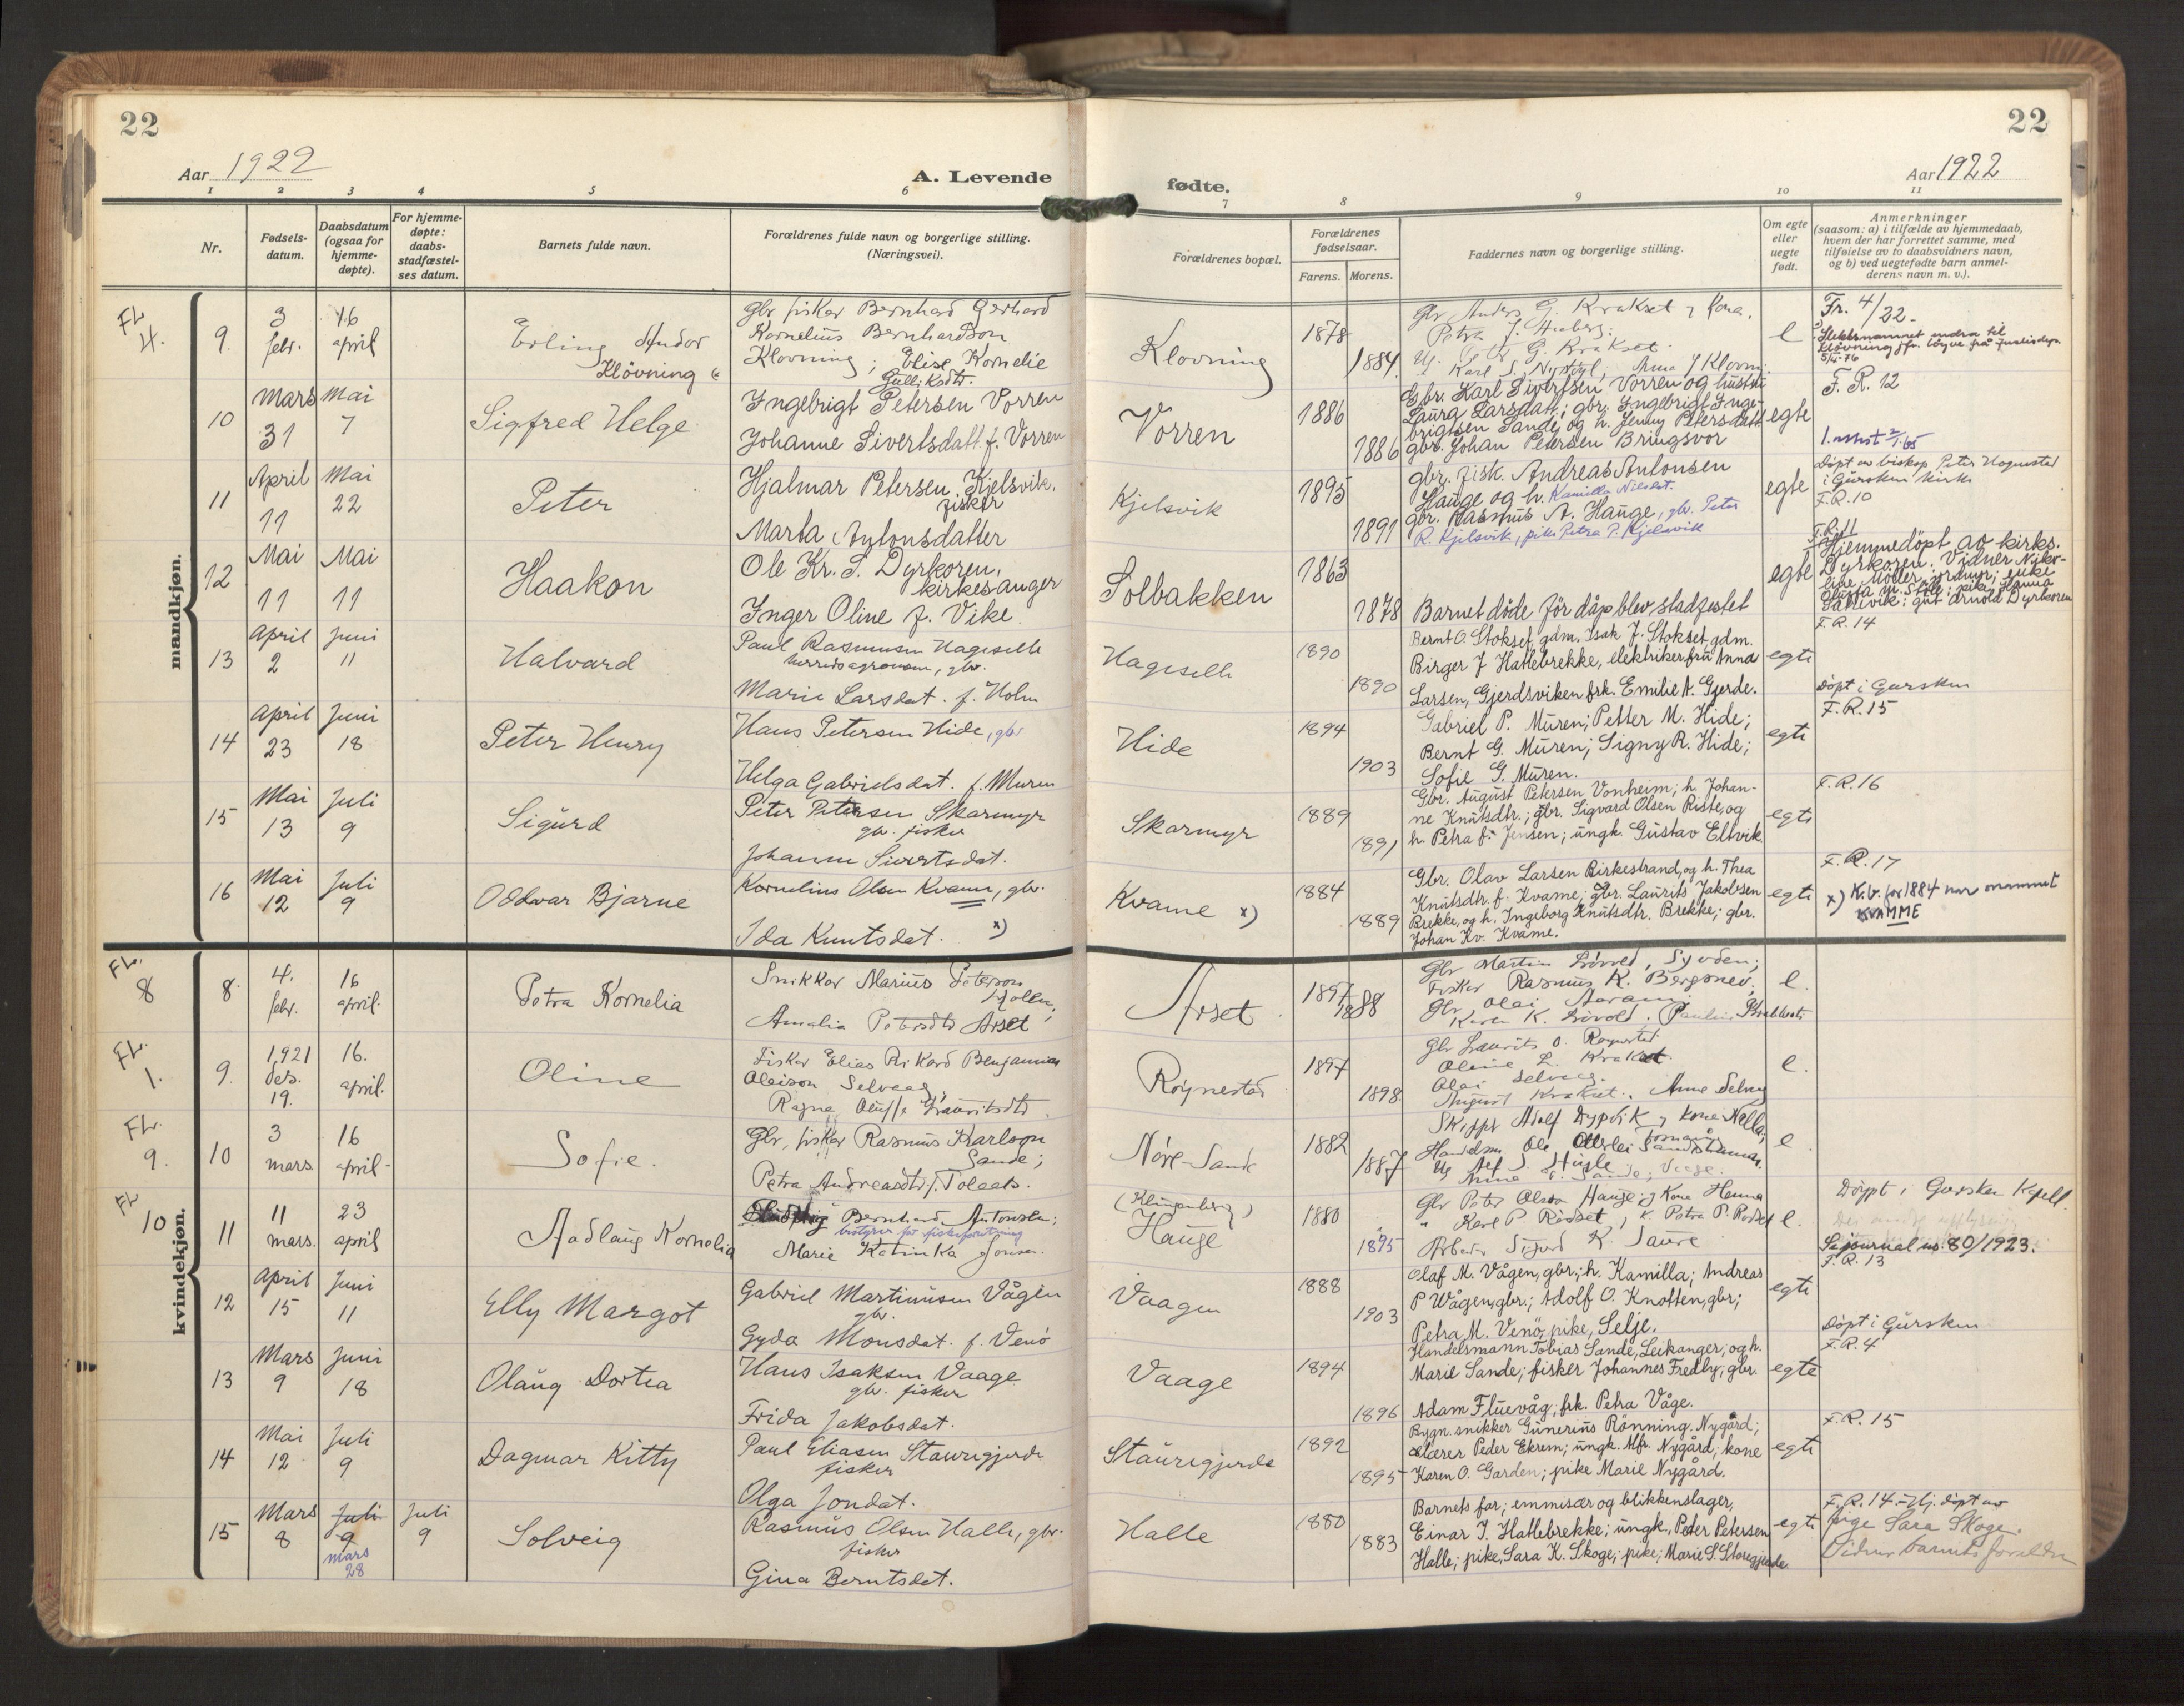 22
22
Aar 1922
A. Levende
fødte.
Aar 1922
1 2 3 4 5 6 7 8 9 10 11
Nr.
Fødsels-
datum.
Daabsdatum
(ogsaa for
hjemme-
døpte).
For hjemme-
døpte:
daabs-
stadfæstel-
ses datum.
Barnets fulde navn.
Forældrenes fulde navn og borgerlige stilling.
(Næringsvei).
Forældrenes bopæl.
Forældrenes
fødselsaar.
Farens. Morens.
Faddernes navn og borgerlige stilling.
Om egte
eller
uegte
født.
Anmerkninger
(saasom: a) i tilfælde av hjemmedaab,
hvem der har forrettet samme, med
tilføielse av to daabsvidners navn,
og b) ved uegtefødte barn anmel-
derens navn m. v.).
mandkjøn.
FL 4.
9.
3 febr.
16 april
Erling Andor
Kløvning
Gbr fisker Bernhard Gerhard
Kornelius Bernhardson
Klovning; Elise Kornelie
Gulliksdtr.
Klovning
1878
1884
Gbr Anders G. Krakset og Kona.
Petra J.
G. Krakset.
Karl S.
e
Fr. 4/22.
Slektsnamnet endra til
Kløvning jfr. løyve frå Justisdep.
10
Mars 31
Mai 7
Sigfred Helge
Ingebrigt Petersen Vorren
Johanne Sivertsdatt. f. Vorren
Vorren
1886
1886
Gbr. Karl Sivertsen Vorren og hustr.
Laura Larsdatt; gbr. Ingebrigt Inge-
brigtsen Sande og h. Jenny Petersdatt.
gbr. Johan Petersen Bringsvor
egte
F. R. 12
11
April 11
Mai 22
Peter
Hjalmar Petersen Kjelsvik,
fisker
Marta Antonsdatter
Kjelsvik
1895
1891
gbr. fisk. Andreas Antonsen
Hauge og h. Kamilla Nilsdat.
gbr. Rasmus A. Hauge, gbr. Peter
R. Kjelsvik, pike Petra P. Kjelsvik
egte
Døpt av biskop Peter Hognestad
i Gursken kirke
F.R. 10
12
Mai 11
Mai 11
Haakon
Ole Kr. S. Dyrkoren,
kirkesanger
Inger Oline f. Vike.
Solbakken
1863
1878
Barnet døde før dåp blev stadfestet
egte
Hjemmedøpt av kirks.
Dyrkoren. Vidner Niko-
line Moller, jordmor; enke
pike Hanna
Sætrevik; gut Arnold Dyrkoren
13
April 2
Juni 11
Halvard
Paul Rasmusen Hageselle
herredsagronom, gbr.
Marie Larsdat. f. Holm
Hageselle
1890
1890
Bernt O. Stokset, gdm. Isak J. Stokset, gdm.
Birger J Hatlebrekke, elektriker, fru Anna
Larsen, Gjerdsviken frk. Emilie A. Gjerde.
egte
F.R. 14
14
April 23
Juni 18
Peter Henry
Hans Petersen Hide, gbr
Helga Gabrielsdat. f. Muren
Hide
1894
1903
Gabriel P. Muren; Petter M. Hide;
Bernt G. Muren; Signy R. Hide;
Sofie G. Muren.
egte
Døpt i Gursken
F.R. 15
15
Mai 13
Juli 9
Sigurd
Peter Petersen Skarmyr
gbr. fisker
Johanne Sivertsdat.
Skarmyr
1889
1891
Gbr. August Petersen Vonheim; h. Johan-
ne Knutsdtr.; gbr. Sigvard Olsen Riste, og
h. Petra f. Jensen; ungk. Gustav Eltvik
egte
F.R. 16
16
Mai 12
Juli 9
Oddvar Bjarne
Kornelius Olsen Kvame, gbr.
Ida Knutsdat. x)
Kvame x)
1884
1889
Gbr. Olav Larsen Birkestrand, og h. Thea
Knutsdtr. f. Kvame; gbr. Laurits Jakobsen
Brekke, og h. Ingeborg Knutsdtr. Brekke; gbr.
Johan Kv. Kvame.
egte
F.R. 17
x) K.b. for 1884 har
KVAMME
kvindekjøn.
FL. 8
8.
4. febr.
16 april.
Petra Kornelia
Snikkar Marius Peterson
Amalia Petersdtr Arset
Arset
1897
1888
Gbr Martin Lovold, Syvden;
Fisker Rasmus K. Bergsnev;
Gbr Olai Aaram;
Karen K. Lovold.
e.
FL. 1.
9.
1921 des. 19.
16. april.
Oline
Fisker Elias Rikard Benjamin
Oleison Selvaag,
Ragna Oluffa Lauritsdtr.
Røynestad
1897
1898
Gbr Laurits O. Røynestad
Oline L. Krakset
Olai Selvaag.
August Krakset. Anne Selvaag
e.
FL. 9.
10
3 mars
16 april.
Sofie.
Gbr, fisker Rasmus Karlson
Sande;
Petra Andreasdtr f. Tolaas.
Nore-Sande
1882
1887
Skippr Adolf Dypvik og kone Kella,
Handelsm Ole
e
FL 10
11
11 mars.
23 april
Aadlaug Kornelia
Bernhard Antonsen;
bestyrer for fiskeforretning
Marie Katinka Jonsen.
(Klungenberg)
Hauge
1880
1895
Gbr Peter Olsen Hauge og Kona Hanna
" Karl P. Rosset, K. Petra P. Rosset
Arbeider Sigurd K. Saure
e.
Døypt i Gursken Kapell
Se journal no. 80/1923.
12
April 15
Juni 11
Elly Margot
Gabriel Martinusen Vågen
gbr.
Gyda Monsdat. f. Venø
Vaagen
1888
1903
Olaf M. Vågen, gbr.; h. Kamilla; Andreas
P Wågen, gbr.; Adolf O. Knotten, gbr;
Petra M. Venø, pike, Selje.
egte
F.R. 13
13
Mars 9
Juni 18
Olaug Dortea
Hans Isaksen Vaage
gbr. fisker
Frida Jakobsdat.
Vaage
1894
1896
Handelsmann Tobias Sande, Leikanger, og h.
Marie Sande; fisker Johannes Fredby; gbr.
Adam Fluevåg; frk. Petra Våge.
egte
Døpt i Gursken
F.R. 4
14
Mai 12
Juli 9
Dagmar Kitty
Paul Eliasen Staurigjerde
fisker
Olga Jondat.
Staurigjerde
1892
1895
Bygn. snikker Gunerius Rønning. Nygård;
Lærer Peder Ekrem; ungk. Alfr. Nygård; kone
Karen O. Garden; pike Marie Nygård.
egte
F.R. 15
15
Mars 8
Juli 9
mars 28
Juli 9
Solveig
Rasmus Olsen Halle, gbr.
fisker
Gina Berntsdat.
Halle
1880
1883
Barnets far; emmisær og blikkenslager,
Einar J. Hatlebrekke; ungk., Peder Petersen
Halle; pike, Sara K. Skoge; pike; Marie S. Storegjerde
egte
F.R. 14 - Hj. døpt av
pige Sara Skoge.
Vidner barnets foreldre